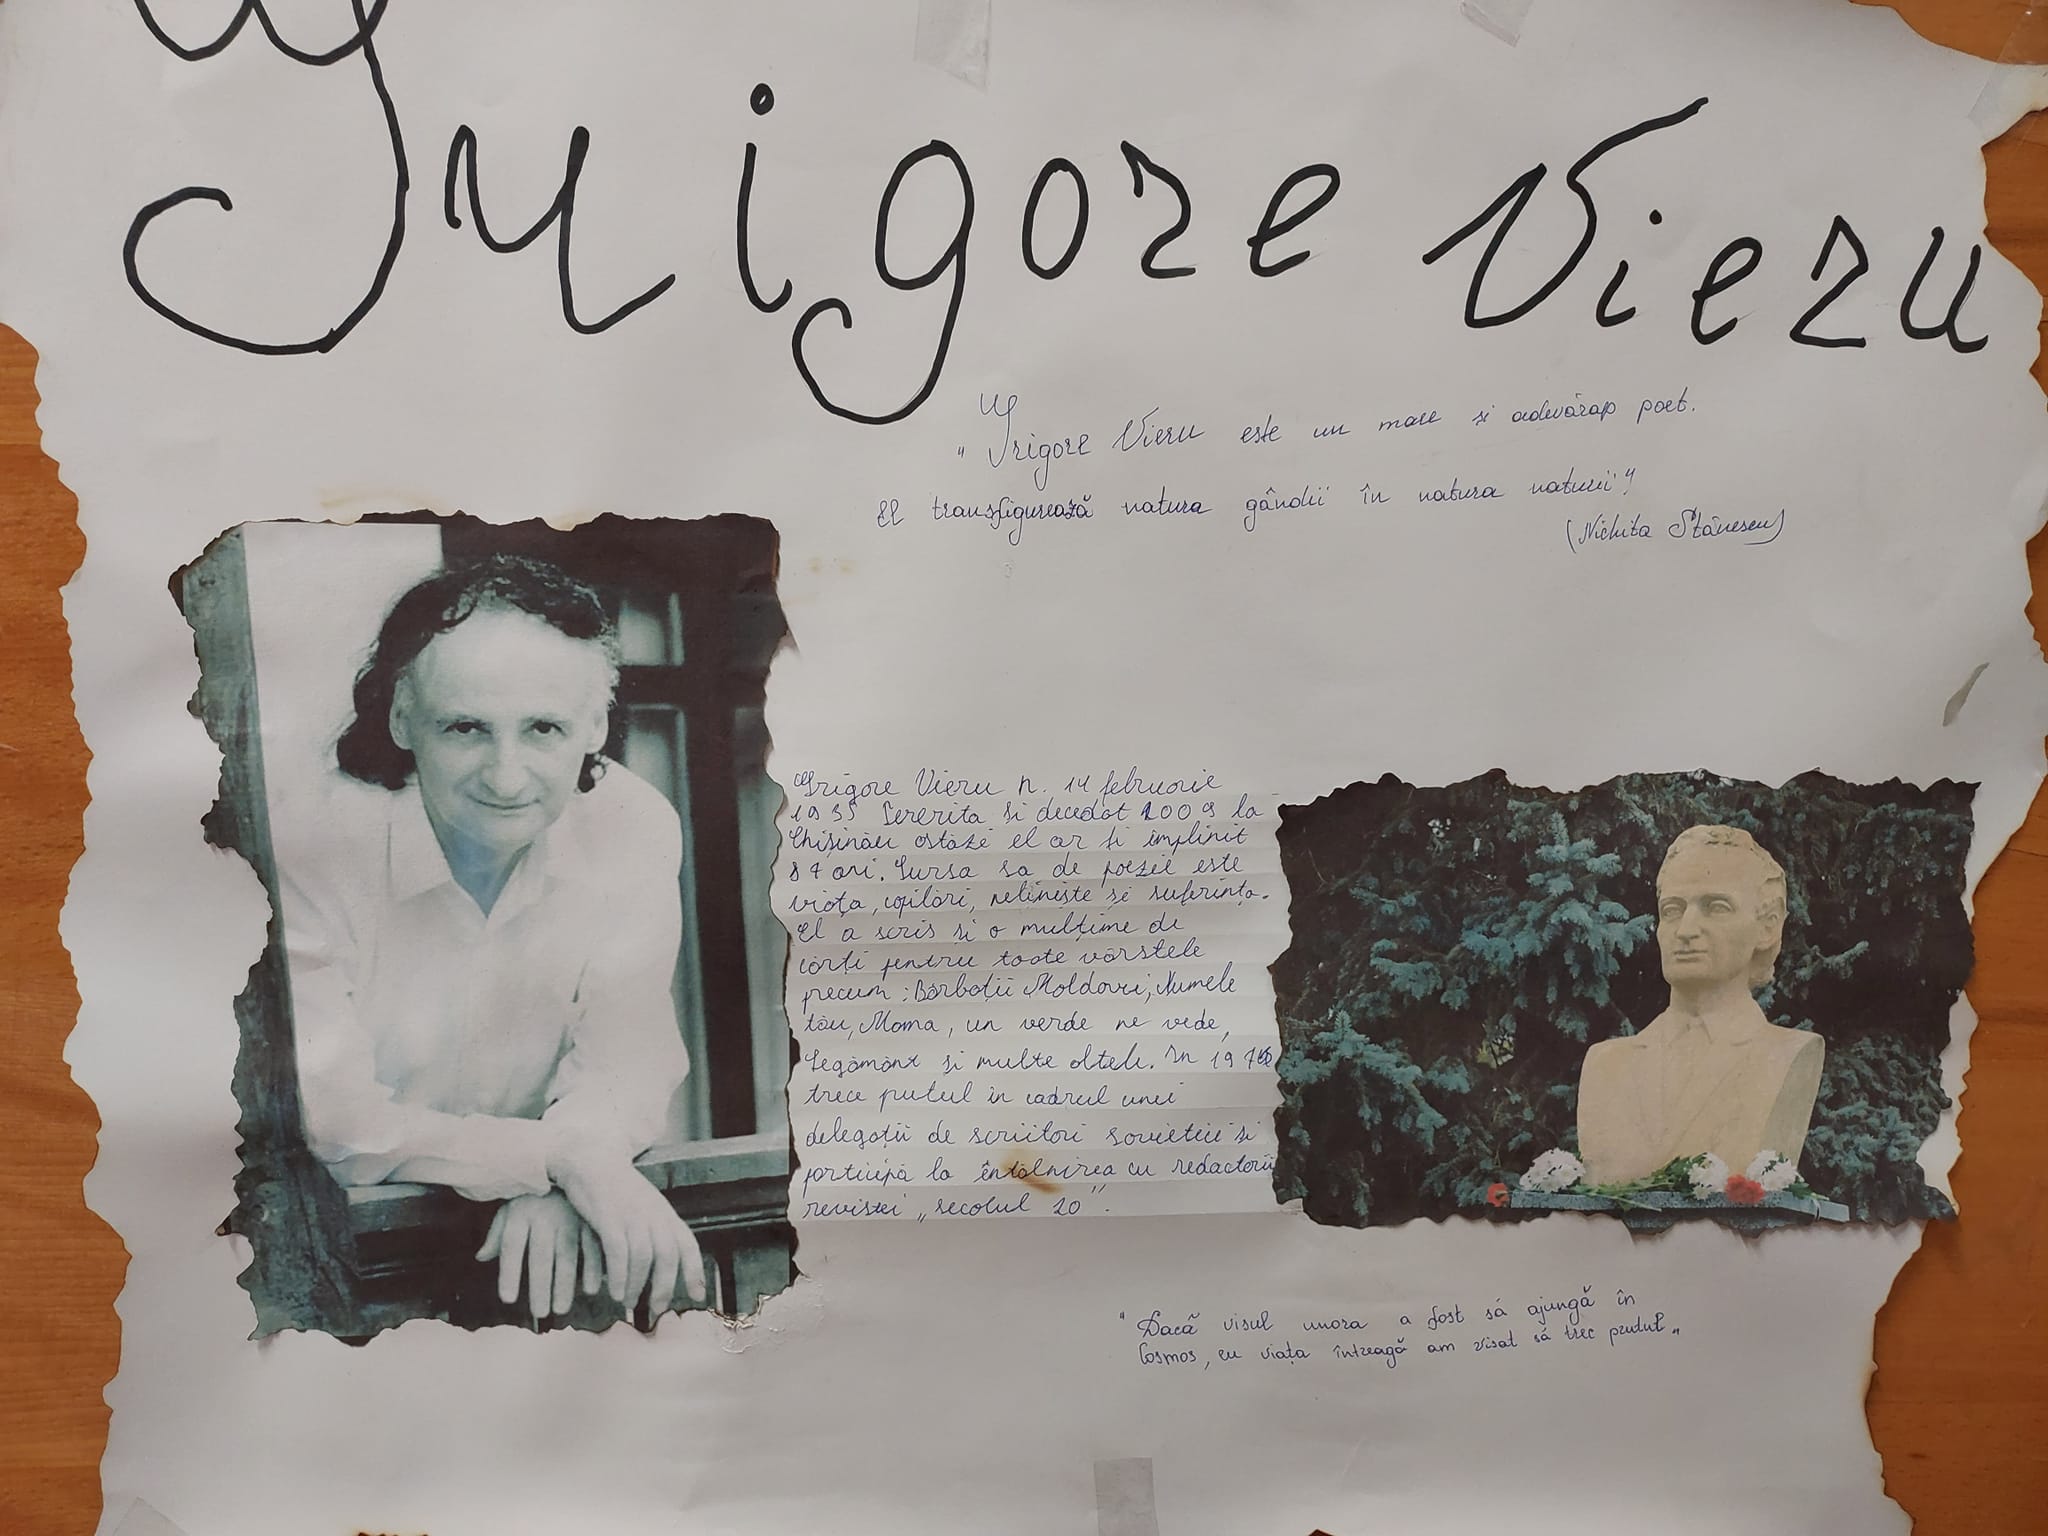 Grigore Vieru
" Grigore Vieru este un mare și adevărap poet.
El transfigurează natura gândii în natura naturii"
(Nichita Stănescu)
Grigore Vieru n. 14 februarie
1935 Pererita si decedat 2009 la
Chișinău ostăzi el ar fi implinit
84 ani. Sursa sa de poezii este
viața, copilări, neliniște și suferința.
El a scris si o mulțime de
cărți pentru toate vârstele
precum : Bărbații Moldovi, Numele
tău, Mama, un verde ne vede,
Legământ si multe altele. In 19
trece putul in cadrul unei
delegații de scriitori sovietici si
participă la întâlnirea cu redactorii
revistei „secolul 20".
" Dacă visul unora a fost să ajungă în
Cosmos, eu viața întreagă am visat să trec prutul „